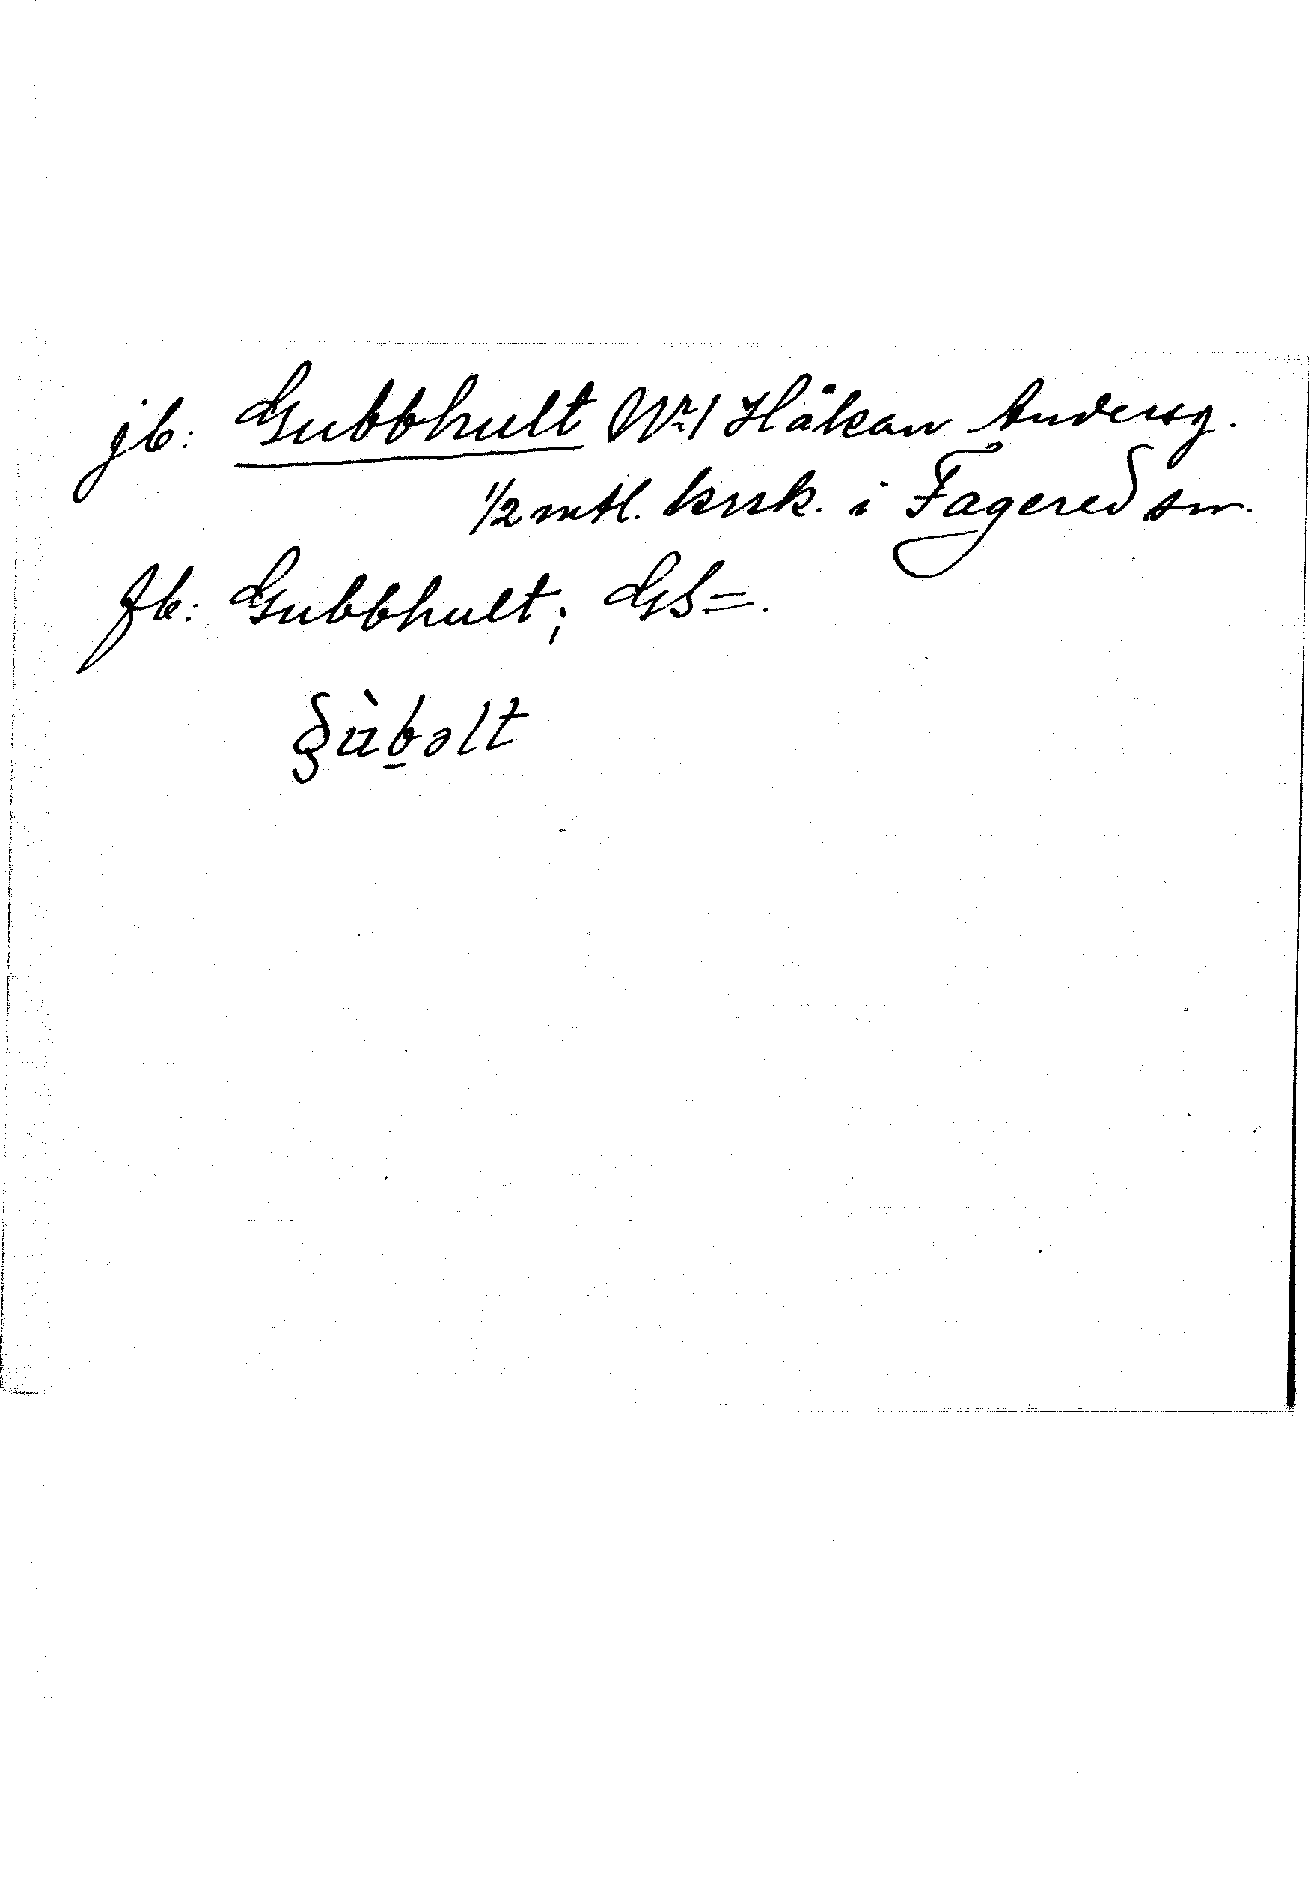 jb: Gubbhult No 1 Håkan Andersg.
1/2 mtl. krsk. i Fagered sn.
fb: Gubbhult; GS=.
gùbəlt